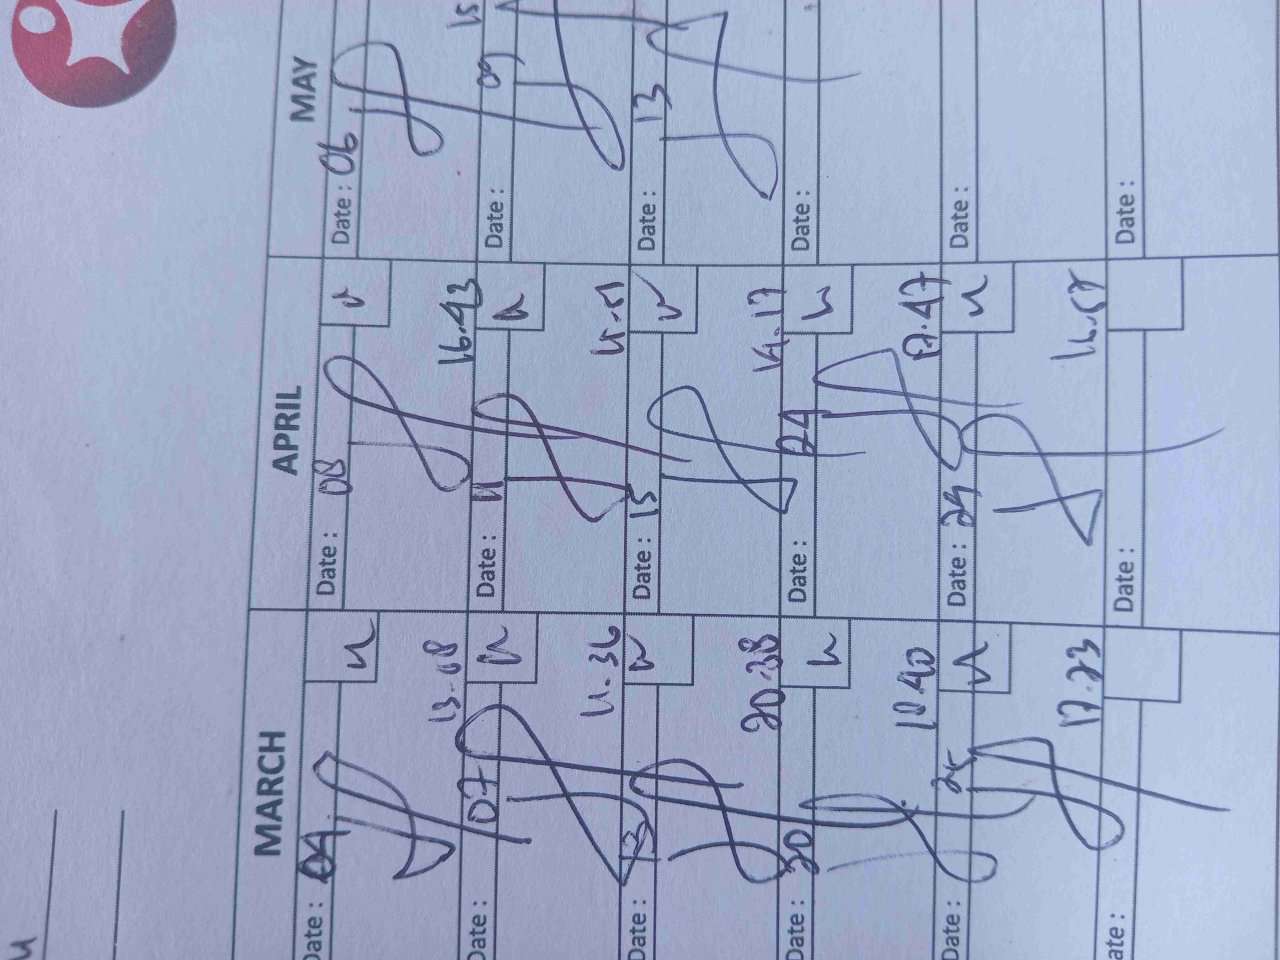 MARCH APRIL MAY
Date : 04 Date : 08 Date : 06
13.08 16.43 15
Date : 07 Date : 11 Date : 09
11.36 11.51
Date : 13 Date : 15 Date : 13
20.38 14.17
Date : 20 Date : 24 Date :
18.40 17.47
Date : 25 Date : 29 Date :
17.23 16.58
Date : Date : Date :